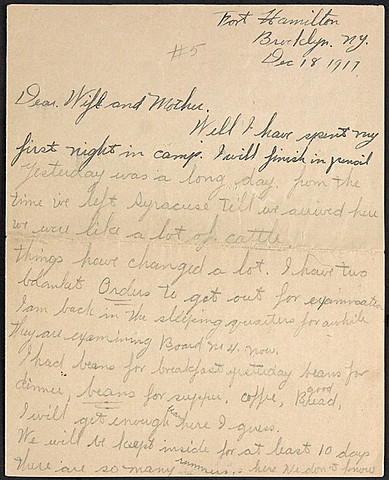 Fort Hamilton
Brocklyn. NY.
#5
Dec 18 1917
Dear. Wife and Mother.
Well I have spent my
first night in camp. I will finish in pencil
Yesterday was a long day. from the
time we left Syracuse till we arrived here
we were like a lot of cattle.
things have changed a lot. I have two
blanket Orders to get out for examination
I am back in the sleeping quarters for awhile
They are examining Board No 4. now.
I had beans for breakfast yesterday beans for
dinner, beans for supper. coffee, good Bread,
I will get enough beans here I guess.
We will be kept inside for at least 10 days
there are so many here We don't know